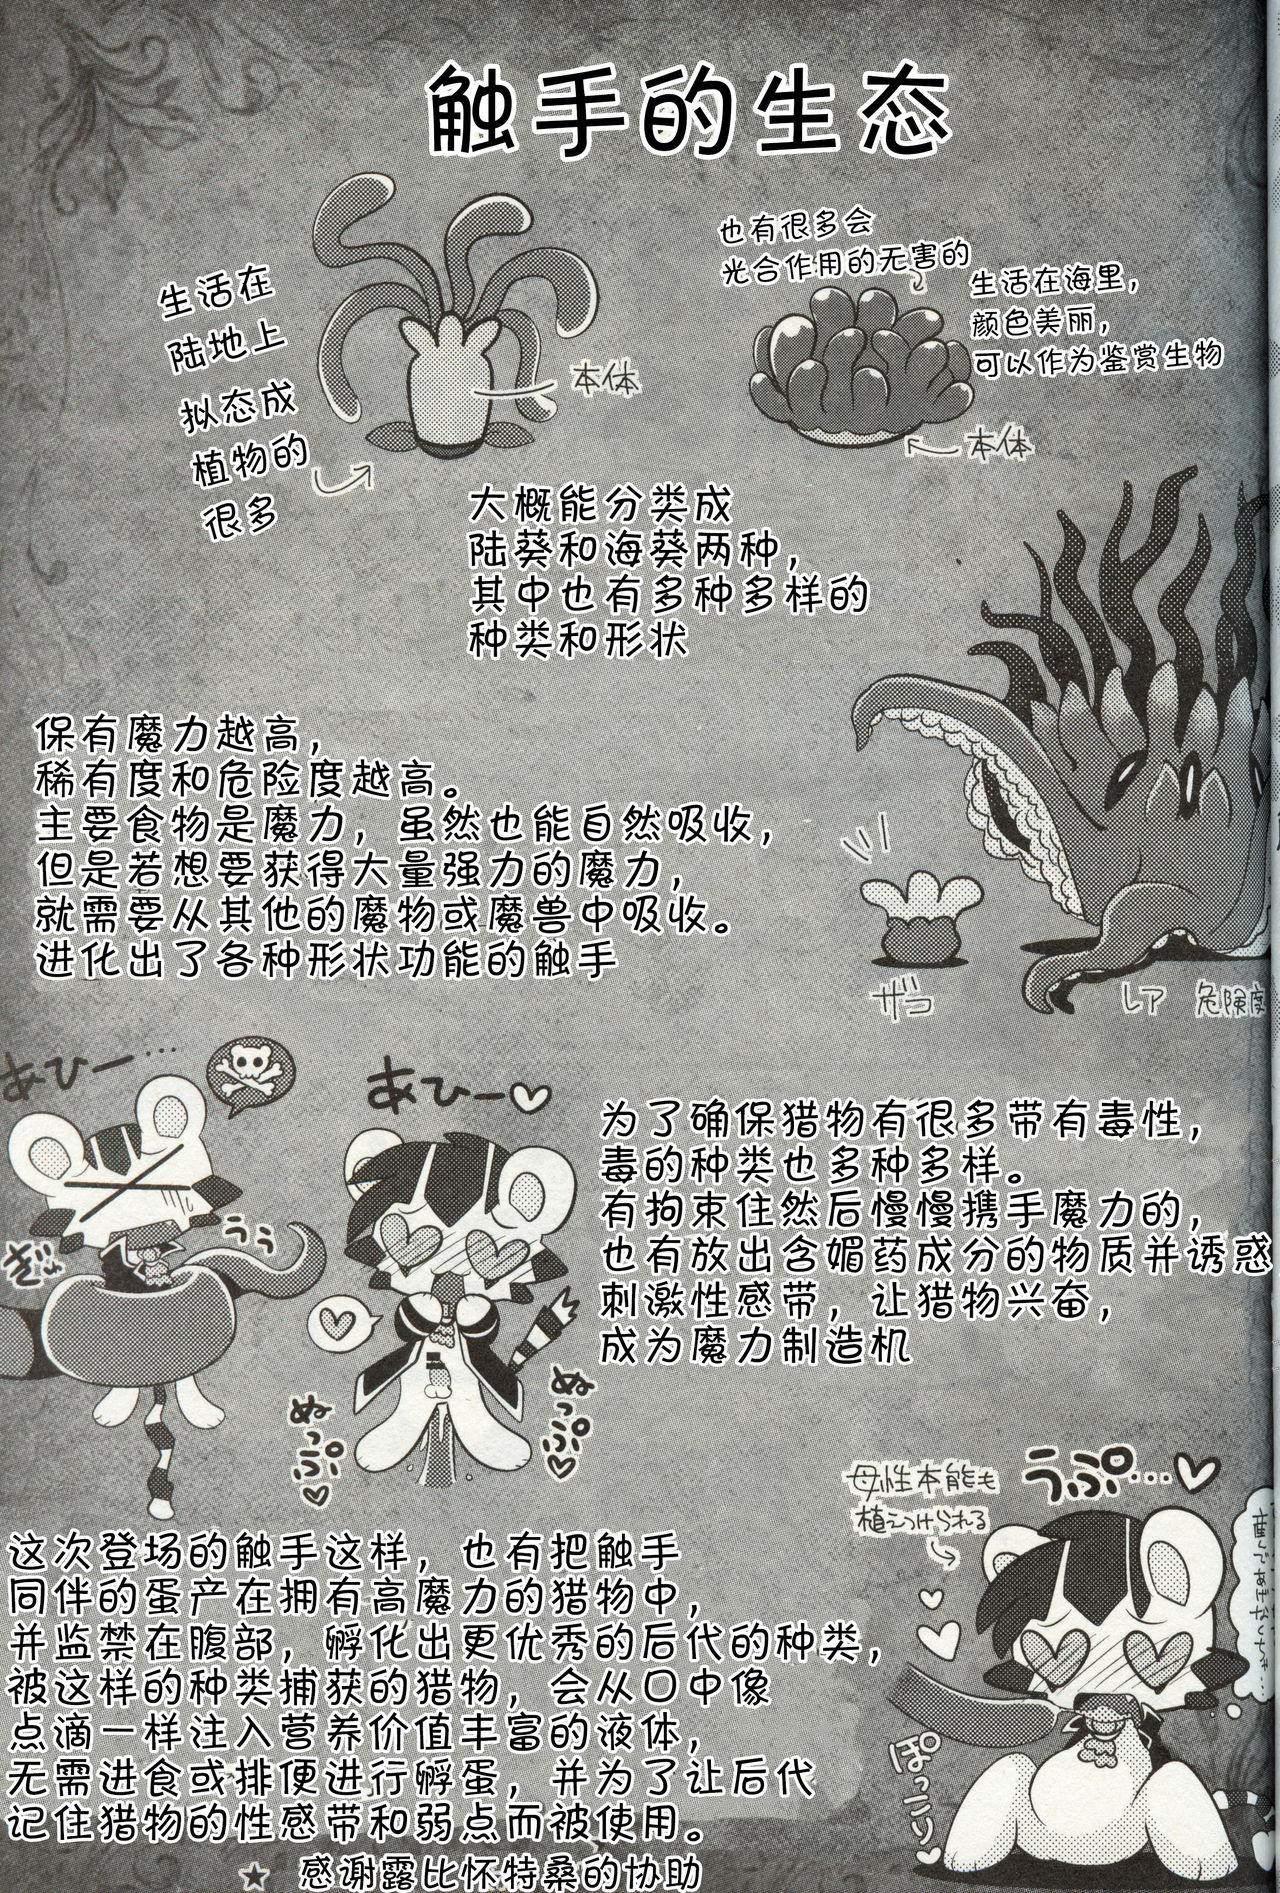 触手的生态
生活在
陆地上
拟态成
植物的
很多
本体
也有很多会
光合作用的无害的
生活在海里，
颜色美丽，
可以作为鉴赏生物
本体
大概能分类成
陆葵和海葵两种，
其中也有多种多样的
种类和形状
保有魔力越高，
稀有度和危险度越高。
主要食物是魔力，虽然也能自然吸收，
但是若想要获得大量强力的魔力，
就需要从其他的魔物或魔兽中吸收。
进化出了各种形状功能的触手
ザコ
レア 危険度
あひー…
ぎゅ
うぅ
あひー♡
ぬっぷ♡
ぬっぷ♡
为了确保猎物有很多带有毒性，
毒的种类也多种多样。
有拘束住然后慢慢携手魔力的，
也有放出含媚药成分的物质并诱惑
刺激性感带，让猎物兴奋，
成为魔力制造机
母性本能も
植えつけられる
うぷ…♡
ぽっこり♡
这次登场的触手这样，也有把触手
同伴的蛋产在拥有高魔力的猎物中，
并监禁在腹部，孵化出更优秀的后代的种类，
被这样的种类捕获的猎物，会从口中像
点滴一样注入营养价值丰富的液体，
无需进食或排便进行孵蛋，并为了让后代
记住猎物的性感带和弱点而被使用。
★ 感谢露比怀特桑的协助